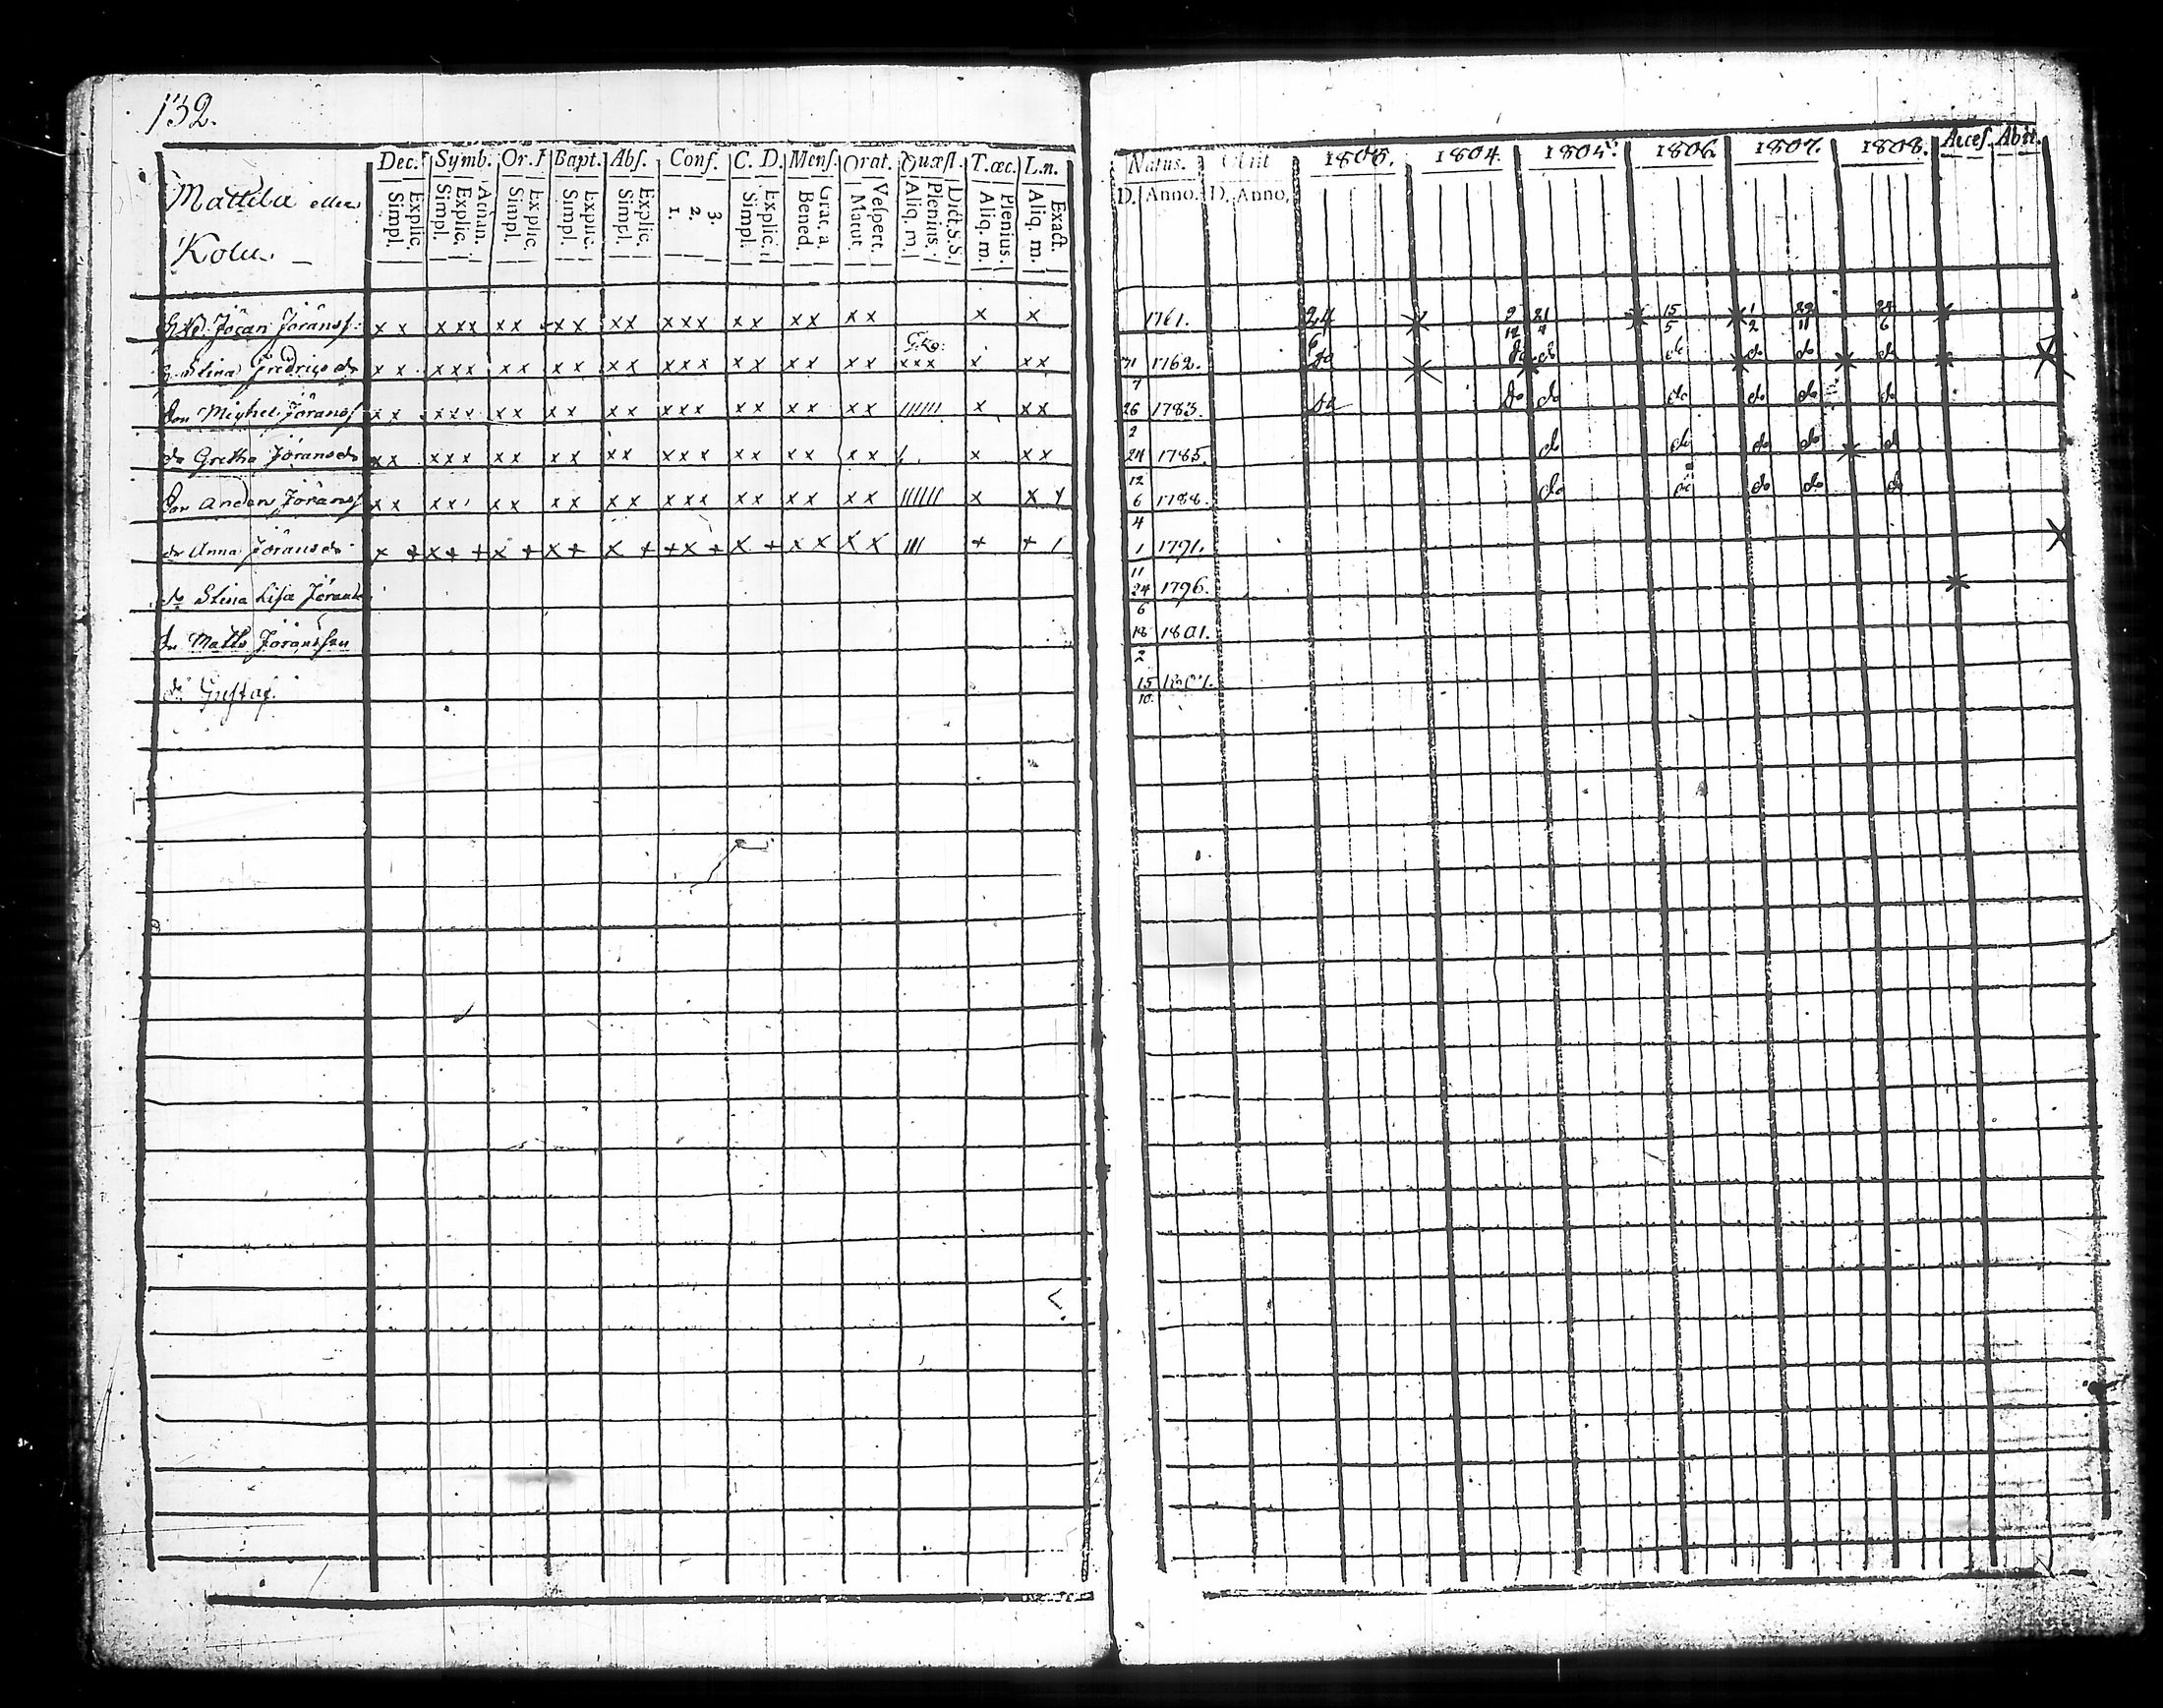 132.
Dec. Symb. Or. Bapt. Abs. Conf. C. D. Mens. Orat. Quæst. T. œc. L.n.
Simpl. Explic. Simpl. Explic. Athan. Simpl. Explic. Simpl. Explic. Simpl. Explic. 1. 2. 3. Simpl. Explic. Bened. Grat. a Matut. Vespert. Aliq. m. Plenius. Dict. S. S. Aliq. m. Plenius. Aliq. m. Exact.
Mattila eller
Kolu
Natus. Obiit 1803. 1804. 1805. 1806. 1807. 1808. Acces. Abiit.
D. Anno. D. Anno.
Jöran Jöranss: x x x x x x x x x x x x x x x x x x x x x x 1761. 24 6 21 4 15 5 1 2 22 11 24 6
Stina Fredricsdr x x x x x x x x x x x x x x x x x x x x x x x x x x 31 7 1762. do do do do do do do
Son Michel Jöranss x x x x x x x x x x x x x x x x x x x x ////// x x x 26 2 1783. do do do do do do do
dr Gretha Jöransdr x x x x x x x x x x x x x x x x x x x x x x x 24 12 1785. do do do do do
Son Anders Jöranss x x x x x x x x x x x x x x x x x x x ////// x x x 6 4 1788. do do do do do
dr Anna Jöransdr x + x + + x + x + x + + x + x + x x x x /// + + / 1 11 1791.
dr Stina Lisa Jöransdr 24 6 1796.
Matts Jöransson 18 2 1801.
Gustaf. 15 10. 1807.